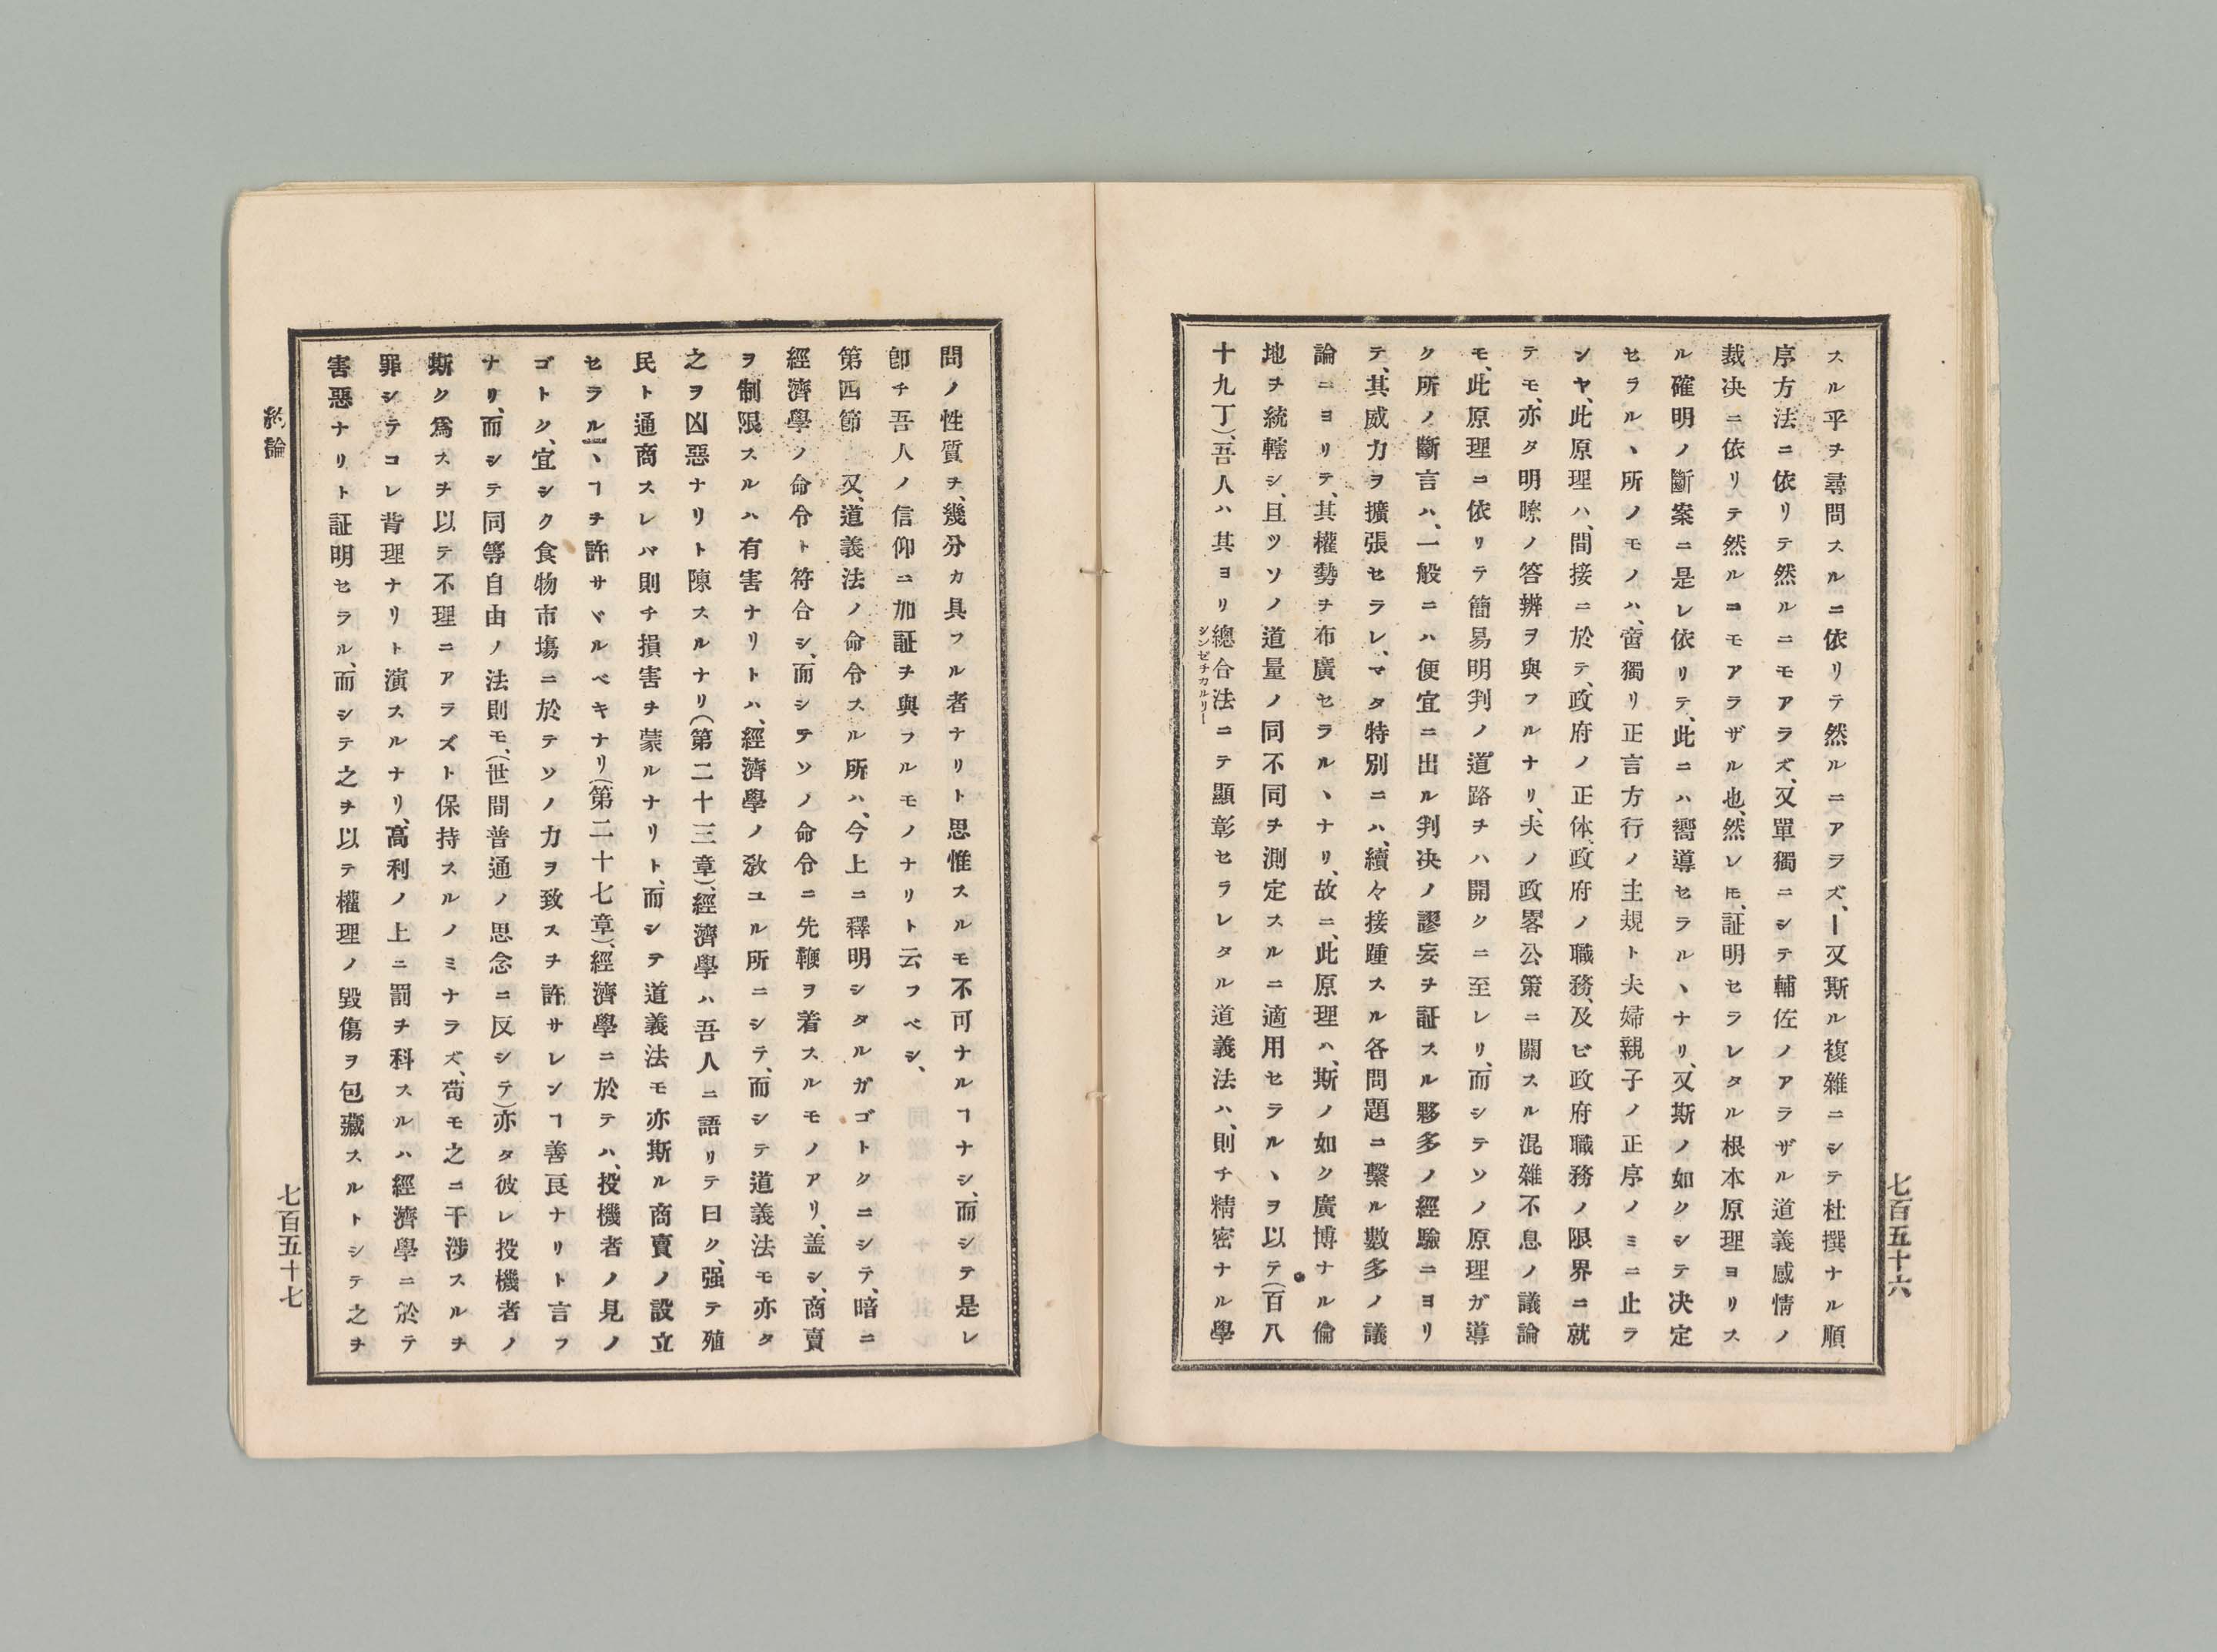 七百五十六
スル乎ヲ尋問スルニ依リテ然ルニアラズ、ー又斯ル複雜ニシテ杜撰ナル順
序方法ニ依リテ然ルニモアラズ、又單獨ニシテ輔佐ノアラザル道義感情ノ
裁决ニ依リテ然ルコモアラザル也、然レ𪜈、証明セラレタル根本原理ヨリス
ル確明ノ斷案ニ是レ依リテ、此ニハ嚮導セラルヽナリ、又斯ノ如クシテ决定
セラルヽ所ノモノハ、啻獨リ正言方行ノ主規ト夫婦親子ノ正序ノミニ止ラ
ンヤ、此原理ハ、間接ニ於テ、政府ノ正体、政府ノ職務、及ビ政府職務ノ限界ニ就
テモ、亦タ明瞭ノ答辨ヲ與フルナリ、夫ノ政畧公策ニ關スル混雜不息ノ議論
モ、此原理コ依リテ簡易明判ノ道路チハ開クニ至レリ、而シテソノ原理ガ導
ク所ノ斷言ハ、一般ニハ便宜ニ出ル判决ノ謬妄チ証スル夥多ノ經驗ニヨリ
テ、其威力ヲ擴張セラレ、マタ特別ニハ、續々接踵スル各問題コ繫ル數多ノ議
論ニヨリテ、其權勢チ布廣セラルヽナリ、故ニ、此原理ハ、斯ノ如ク廣博ナル倫
地ヲ統轄シ、且ツソノ道量ノ同不同ヲ測定スルニ適用セラルヽヲ以テ(百八
十九丁)、吾人ハ其ヨリ總合法ニテ顯彰セラレタル道義法ハ、則チ精密ナル學
シンゼチカルリー
問ノ性質チ、幾分カ具フル者ナリト思惟スルモ不可ナルヿナシ、而シテ是レ
卽チ吾人ノ信仰ニ加証チ與フルモノナリト云フベシ、
第四節　又、道義法ノ命令スル所ハ、今上ニ釋明シタルガゴトクニシテ、暗ニ
經濟學ノ命令ト符合シ、而シテソノ命令ニ先鞭ヲ着スルモノアリ、盖シ、商賣
ヲ制限スルハ有害ナリトハ、經濟學ノ敎ユル所ニシテ、而シテ道義法モ亦タ
之ヲ凶惡ナリト陳スルナリ(第二十三章)、經濟學ハ吾人ニ語リテ曰ク、强テ殖
民ト通商スレバ則チ損害チ蒙ルナリト、而シテ道義法モ亦斯ル商賣ノ設立
セラルヽヿチ許サヾルベキナリ(第二十七章)、經濟學ニ於テハ、投機者ノ見ノ
ゴトク、宜シク食物市塲ニ於テソノ力ヲ致スチ許サレンヿ善良ナリト言フ
ナリ、而シテ同等自由ノ法則モ、(世間普通ノ思念ニ反シテ)亦タ彼レ投機者ノ
斯ク爲スチ以テ不理ニアラズト保持スルノミナラズ、苟モ之ニ干涉スルチ
罪シテコレ背理ナリト演スルナリ、高利ノ上ニ罰チ科スルハ經濟學ニ於テ
害惡ナリト証明セラル、而シテ之チ以テ權理ノ毀傷ヲ包藏スルトシテ之チ
約論
七百五十七